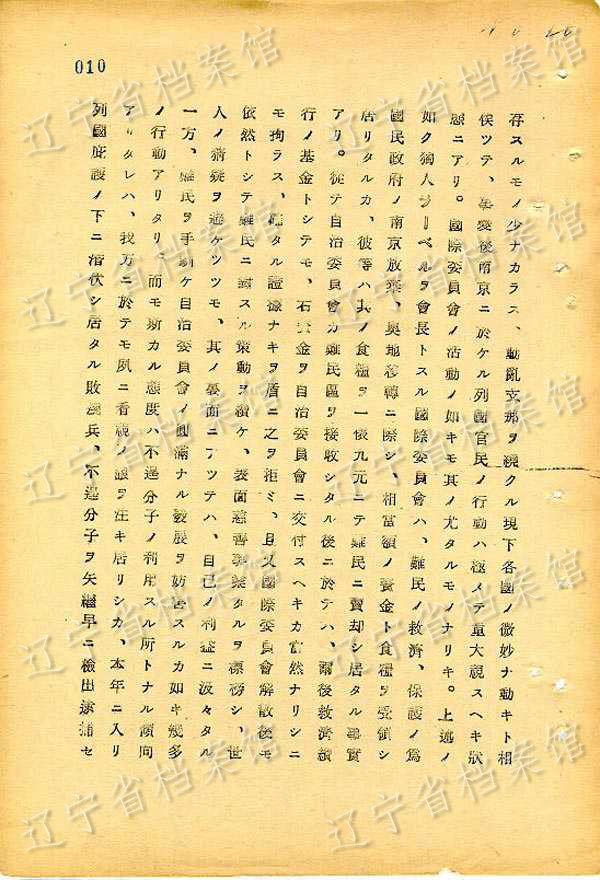 010
存スルモノ少ナカラス、動亂支那ヲ繞クル現下各國ノ微妙ナ動キト相
俟ツテ、事變後南京ニ於ケル列國官民ノ行動ハ極メテ重大視スヘキ狀
態ニアリ。國際委員會ノ活動ノ如キモ其ノ尤タルモノナリキ。上述ノ
如ク獨人ラーベルヲ會長トスル國際委員會ハ、難民ノ救濟、保護ノ爲
國民政府ノ南京放棄、奧地移轉ニ際シ、相當額ノ資金ト食糧ヲ受領シ
居リタルカ、彼等ハ其ノ食糧ヲ一俵九元ニテ難民ニ賣却シ居タル事實
アリ。從テ自治委員會カ難民區ヲ接收シタル後ニ於テハ、爾後救濟續
行ノ基金トシテモ、右資金ヲ自治委員會ニ交付スヘキカ當然ナリシニ
モ拘ラス、確タル證據ナキヲ盾ニ之ヲ拒ミ、且又國際委員會解散後モ
依然トシテ難民ニ對スル策動ヲ續ケ、表面慈善事業タルヲ標榜シ、世
人ノ猜疑ヲ避ケツツモ、其ノ裏面ニアツテハ、自己ノ利益ニ汲々タル
一方、難民ヲ手馴ケ自治委員會ノ圓滿ナル發展ヲ妨害スルカ如キ幾多
ノ行動アリタリ。而モ斯カル態度ハ不逞分子ノ利用スル所トナル傾向
アリタレハ、我方ニ於テモ夙ニ看視ノ眼ヲ注キ居リシカ、本年ニ入リ
列國庇護ノ下ニ潛伏シ居タル敗殘兵、不逞分子ヲ矢繼早ニ檢出逮捕セ
辽宁省档案馆
辽宁省档案馆
辽宁省档案馆
辽宁省档案馆
辽宁省档案馆
辽宁省档案馆
辽宁省档案馆
辽宁省档案馆